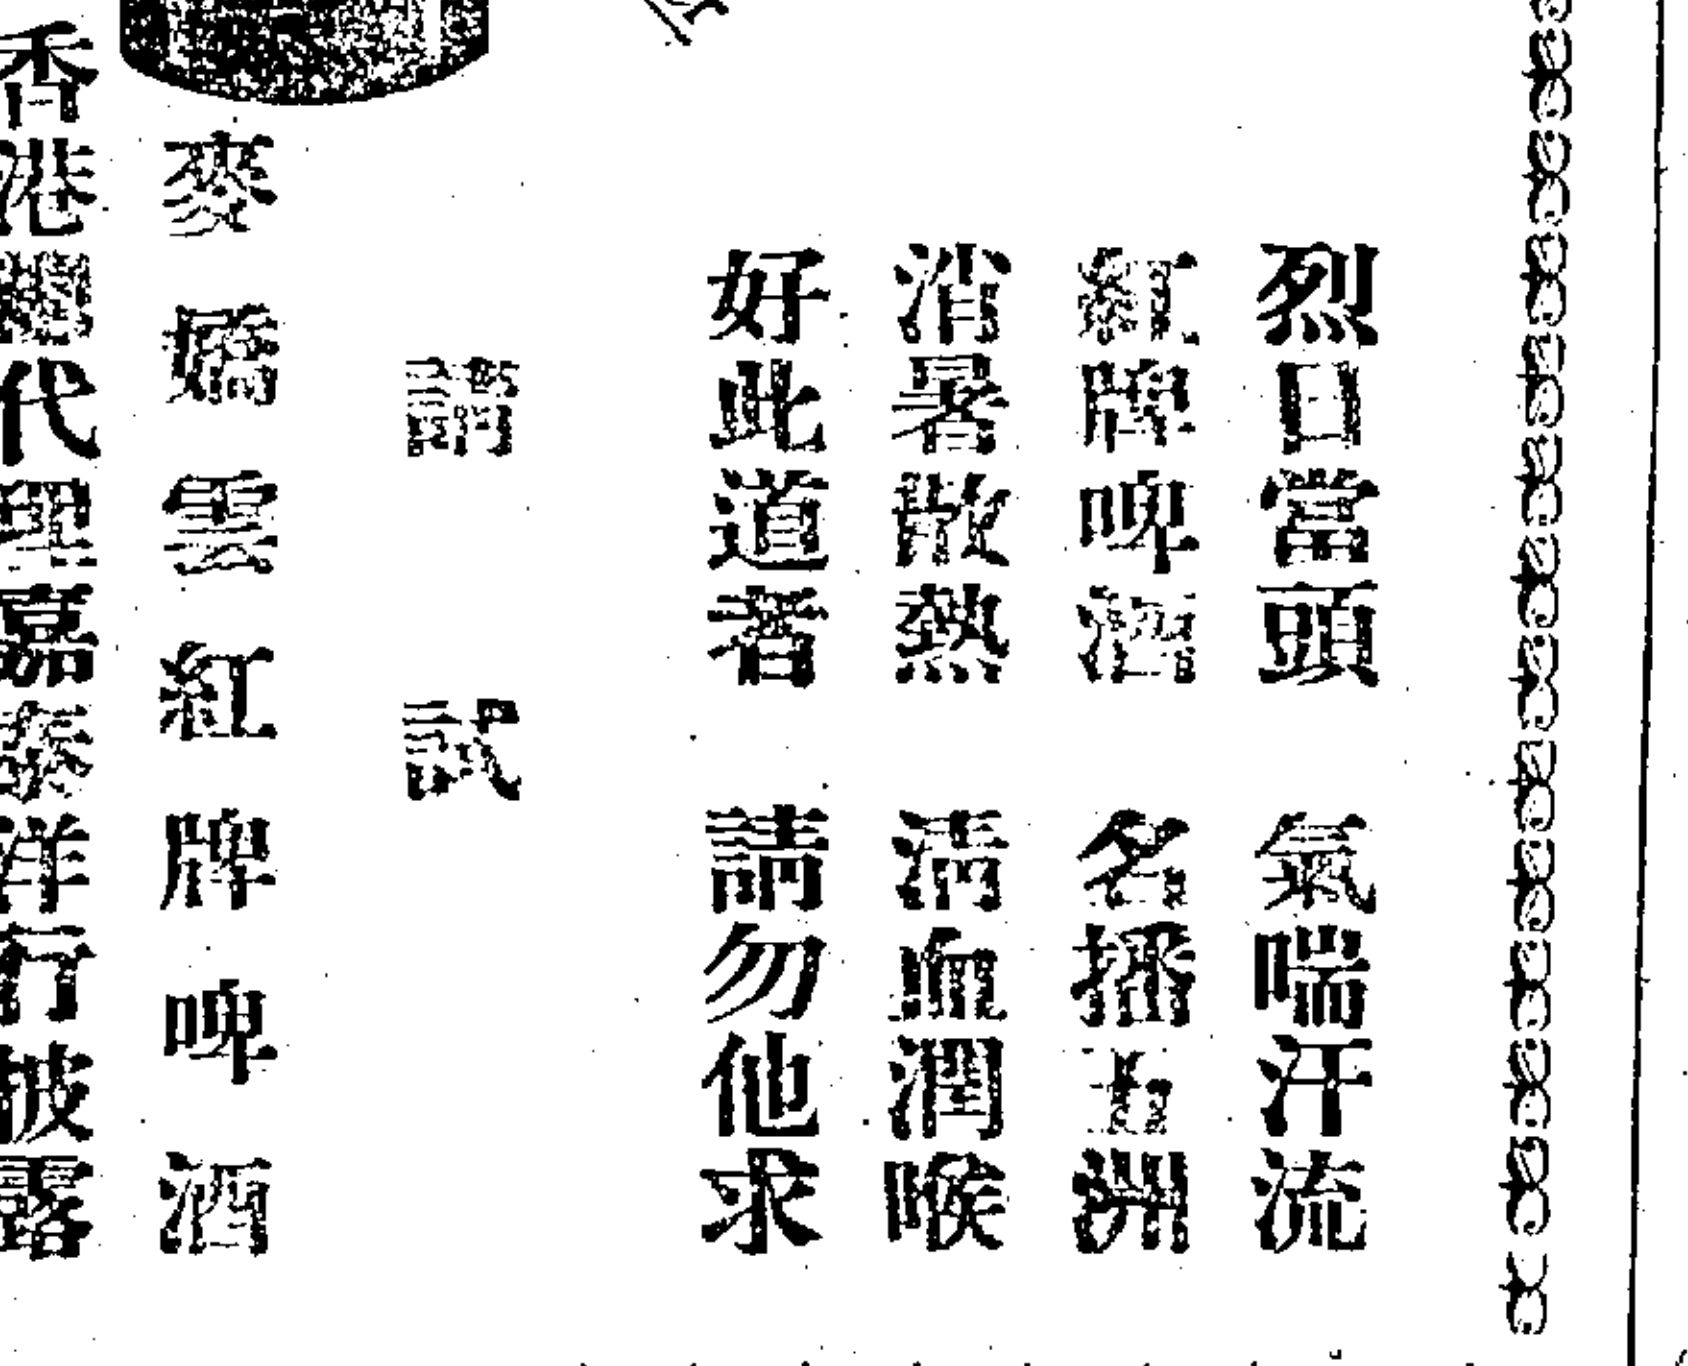 烈日當頭　氣喘汗流
紅牌啤酒　名播五洲
消暑散熱　清血潤喉
好此道者　請勿他求
請試
麥嬌雲紅牌啤酒
香港總代理嘉泰洋行披露